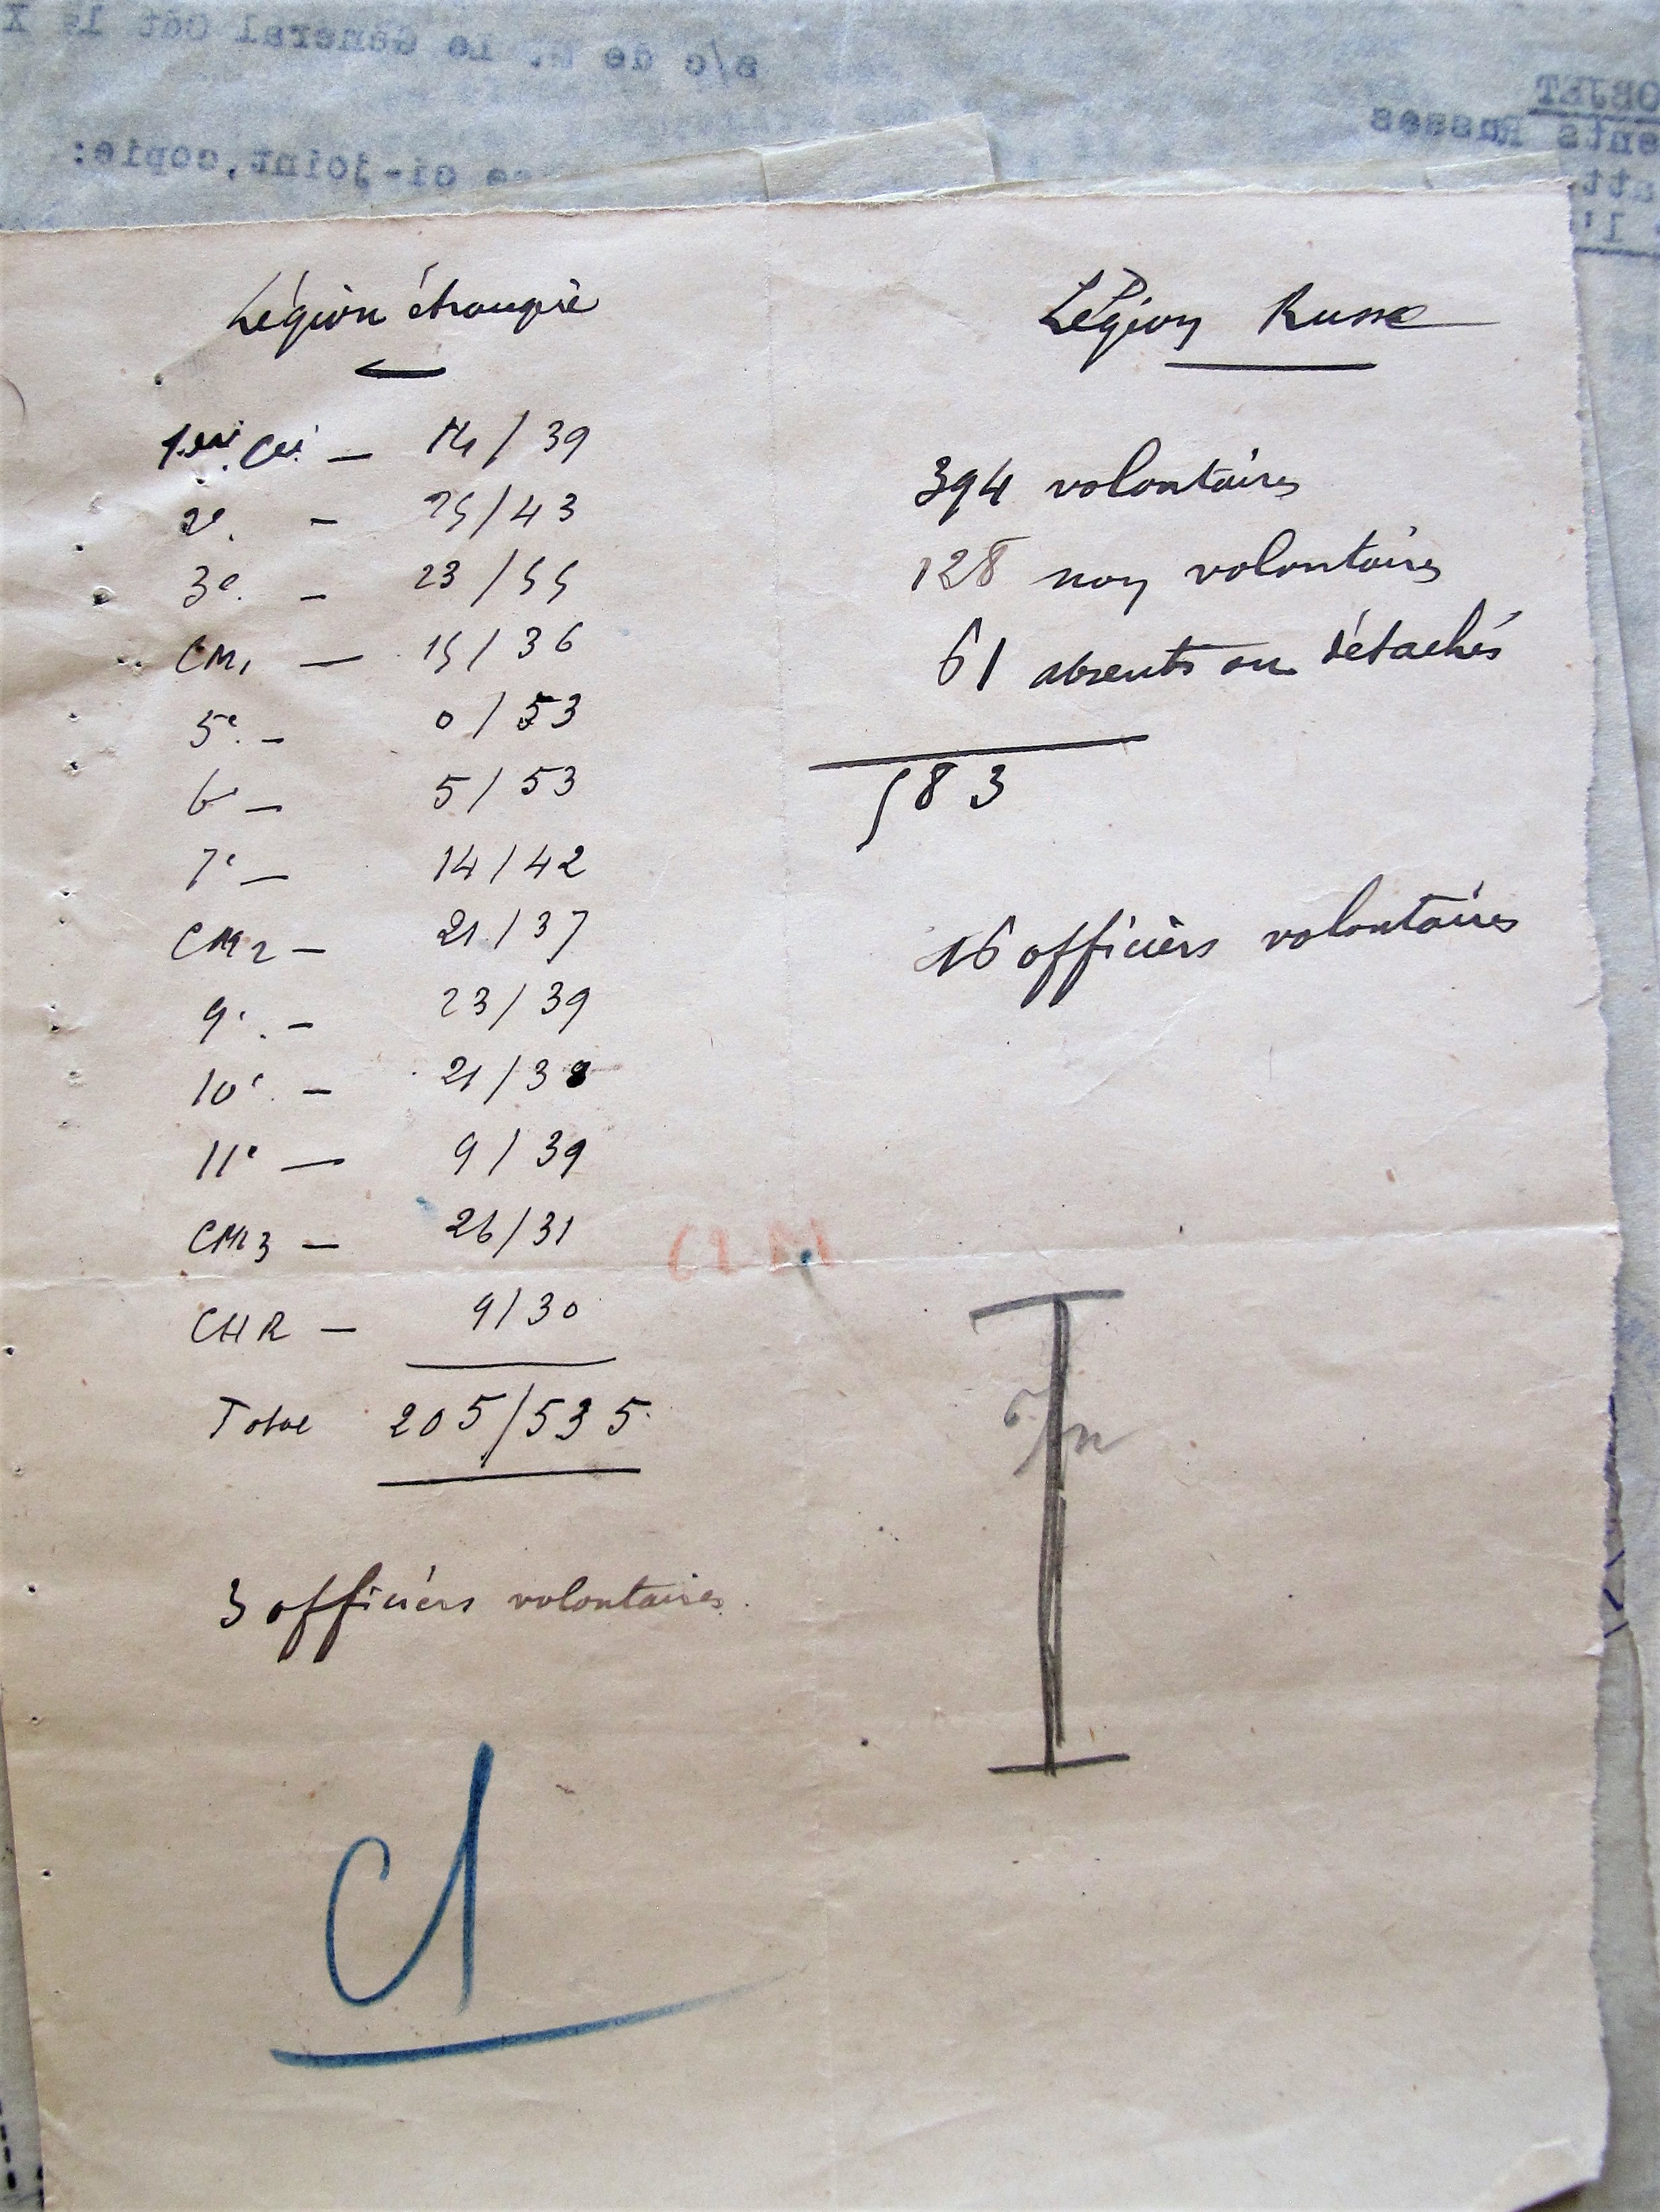 s/c de M. le Général Cdt la X
OBJET
Russes
ci-joint, copie:
Légion étrangère
1ère Cie — 14 / 39
2e. — 25 / 43
3e. — 23 / 55
CM1 — 15 / 36
5e. — 0 / 53
6e — 5 / 53
7e — 14 / 42
CM2 — 21 / 37
9e. — 23 / 39
10e. — 21 / 38
11e — 9 / 39
CM3 — 26 / 31
CHR — 9 / 30
Total 205 / 535
3 officiers volontaires.
Légion Russe
394 volontaires
128 non volontaires
61 absents ou détachés
583
16 officiers volontaires